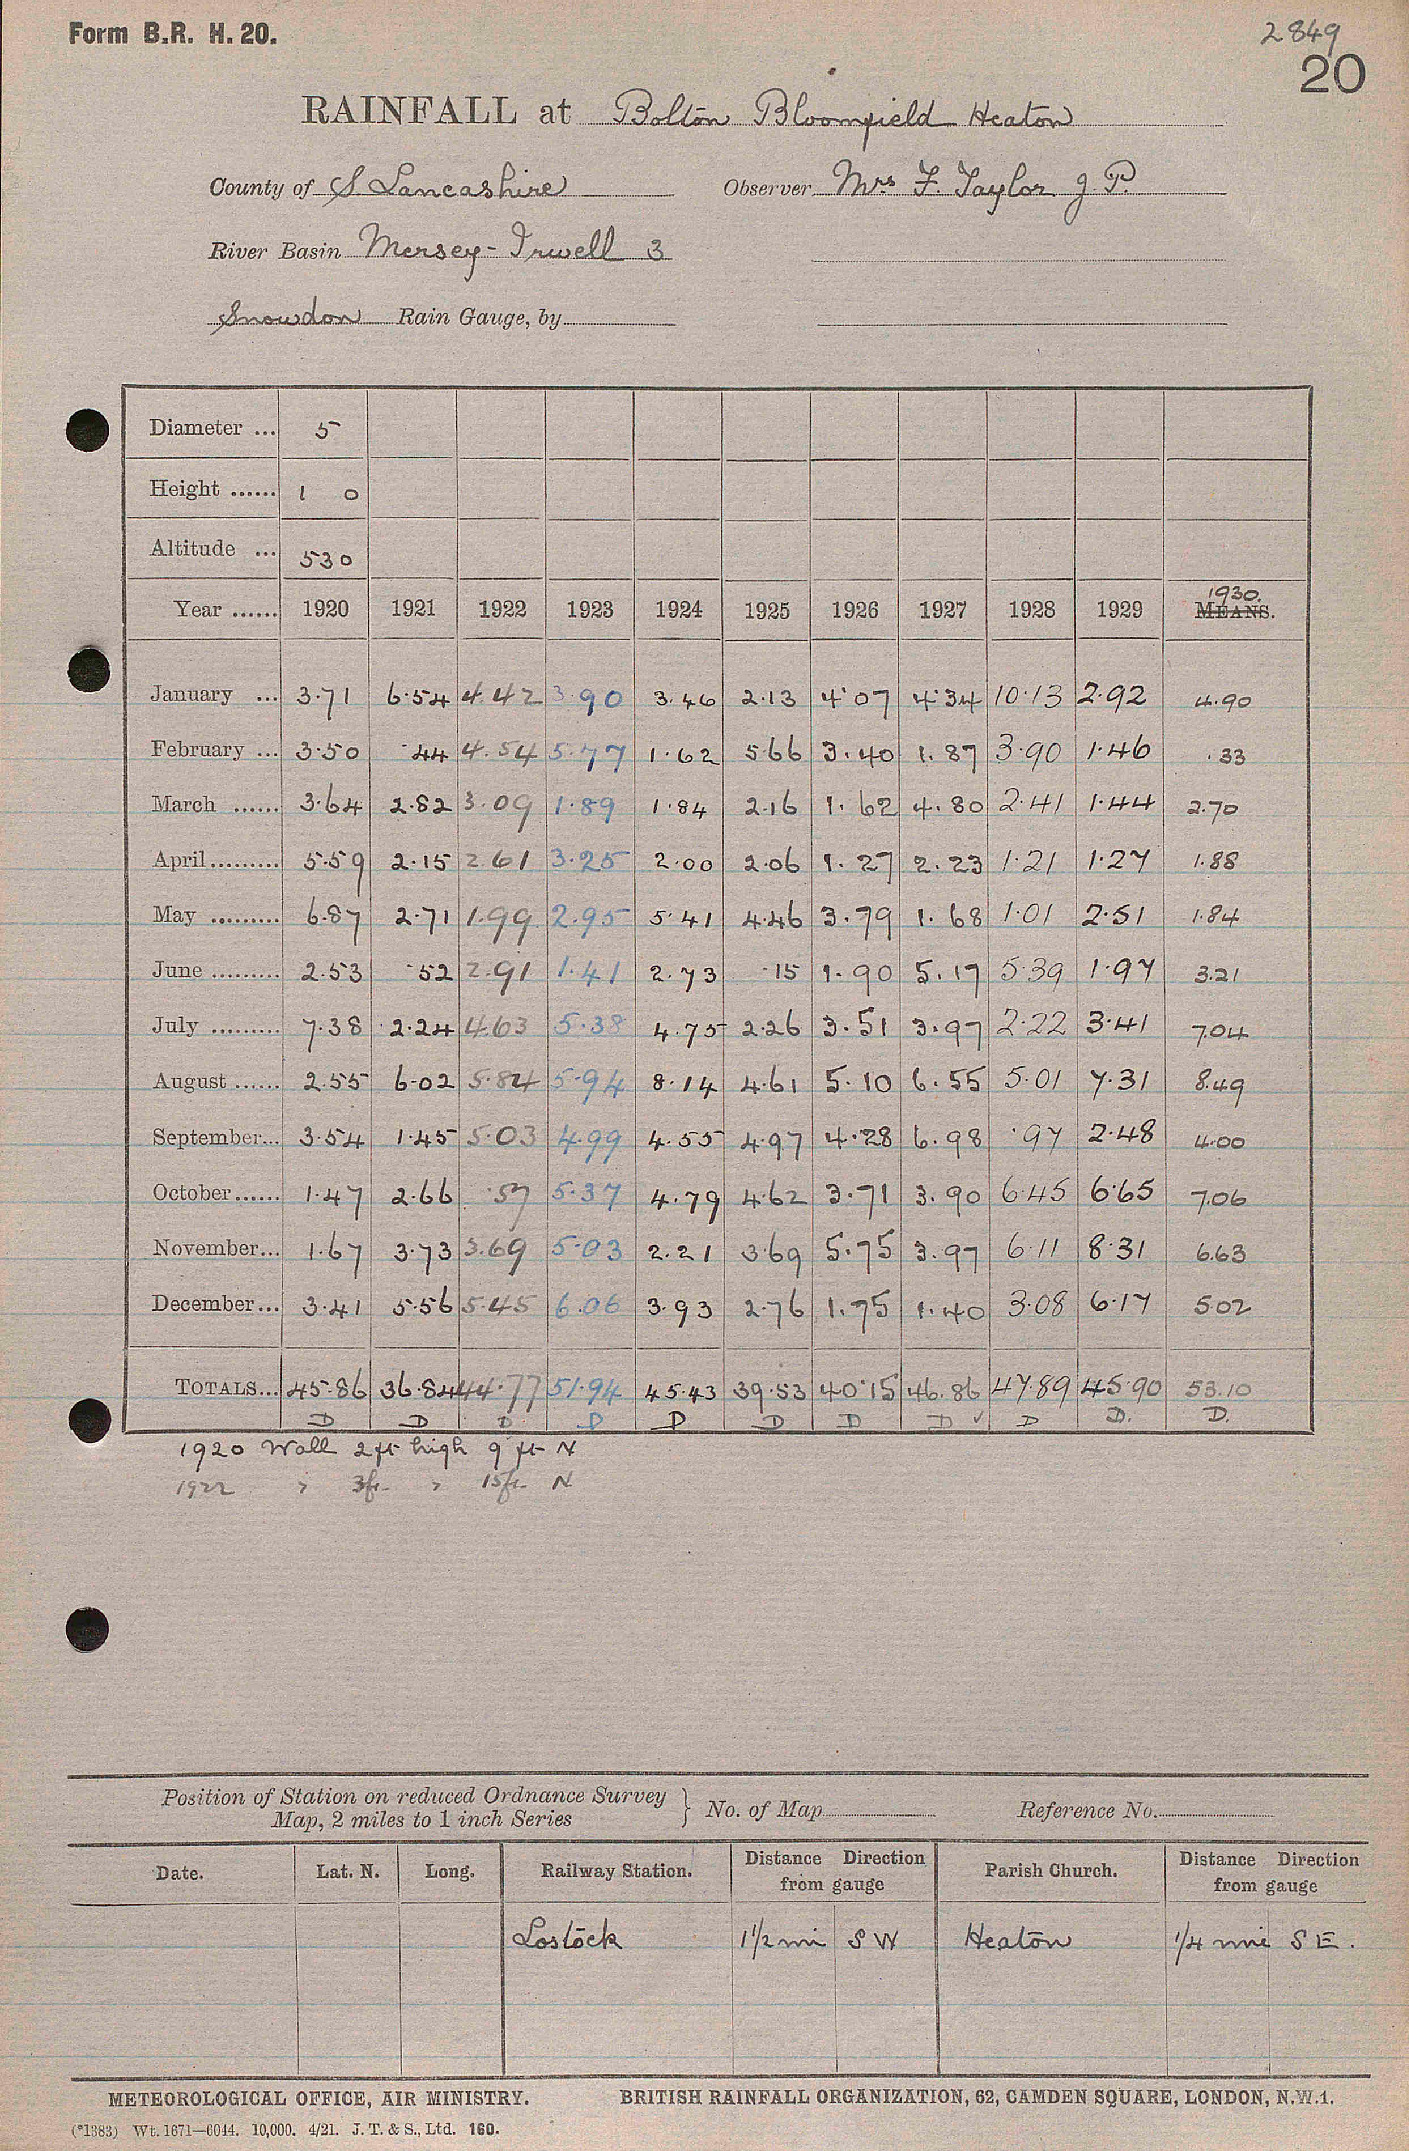 Form B.R. H. 20.
2849
20
RAINFALL at Bolton Bloomfield Heaton
County of S Lancashire Observer Mrs F. Taylor J. P.
River Basin Mersey-Irwell 3
Snowdon Rain Gauge, by
Diameter ... 5
Height ...... 1 0
Altitude ... 530
1930.
Year ...... 1920 1921 1922 1923 1924 1925 1926 1927 1928 1929 MEANS.
January ... 3·71 6·54 4.42 3.90 3.46 2.13 4·07 4·34 10·13 2·92 4.90
February ... 3·50 ·44 4.54 5.77 1.62 5·66 3.40 1.87 3·90 1·46 .33
March ...... 3·64 2.82 3.09 1.89 1·84 2·16 1.62 4.80 2·41 1·44 2.70
April......... 5·59 2·15 2 61 3·25 2·00 2·06 1.27 2.23 1·21 1·27 1.88
May ......... 6·87 2·71 1.99 2.95 5·41 4·46 3.79 1.68 1·01 2·51 1.84
June ......... 2.53 ·52 2.91 1.41 2.73 ·15 1.90 5.17 5·39 1·97 3.21
July ......... 7·38 2·24 4.63 5.38 4.75 2·26 3.51 3.97 2·22 3·41 7.04
August ...... 2.55 6·02 5.84 5.94 8·14 4·61 5.10 6.55 5·01 7·31 8.49
September... 3·54 1·45 5·03 4.99 4.55 4·97 4.28 6.98 ·97 2·48 4.00
October...... 1·47 2·66 ·57 5·37 4.79 4·62 3.71 3.90 6·45 6·65 7.06
November... 1·67 3·73 3.69 5·03 2.21 3·69 5.75 3.97 6·11 8·31 6.63
December... 3·41 5·56 5.45 6.06 3.93 2·76 1.75 1.40 3·08 6·17 5.02
TOTALS... 45·86 36·84 44.77 51.94 45.43 39·53 40·15 46.86 47·89 45·90 53.10
D D D D D D D D ✓ D D. D.
1920 Wall 2 ft high 9 ft N
1922 " 3ft. " 15ft. N
Position of Station on reduced Ordnance Survey
Map, 2 miles to 1 inch Series } No. of Map Reference No.
Date. Lat. N. Long. Railway Station. Distance Direction from gauge Parish Church. Distance Direction from gauge
Lostock 1 1/2 mi S W Heaton 1/4 mi S E.
METEOROLOGICAL OFFICE, AIR MINISTRY. BRITISH RAINFALL ORGANIZATION, 62, CAMDEN SQUARE, LONDON, N.W.1.
(*1383) Wt. 1671—6044. 10,000. 4/21. J. T. & S., Ltd. 160.